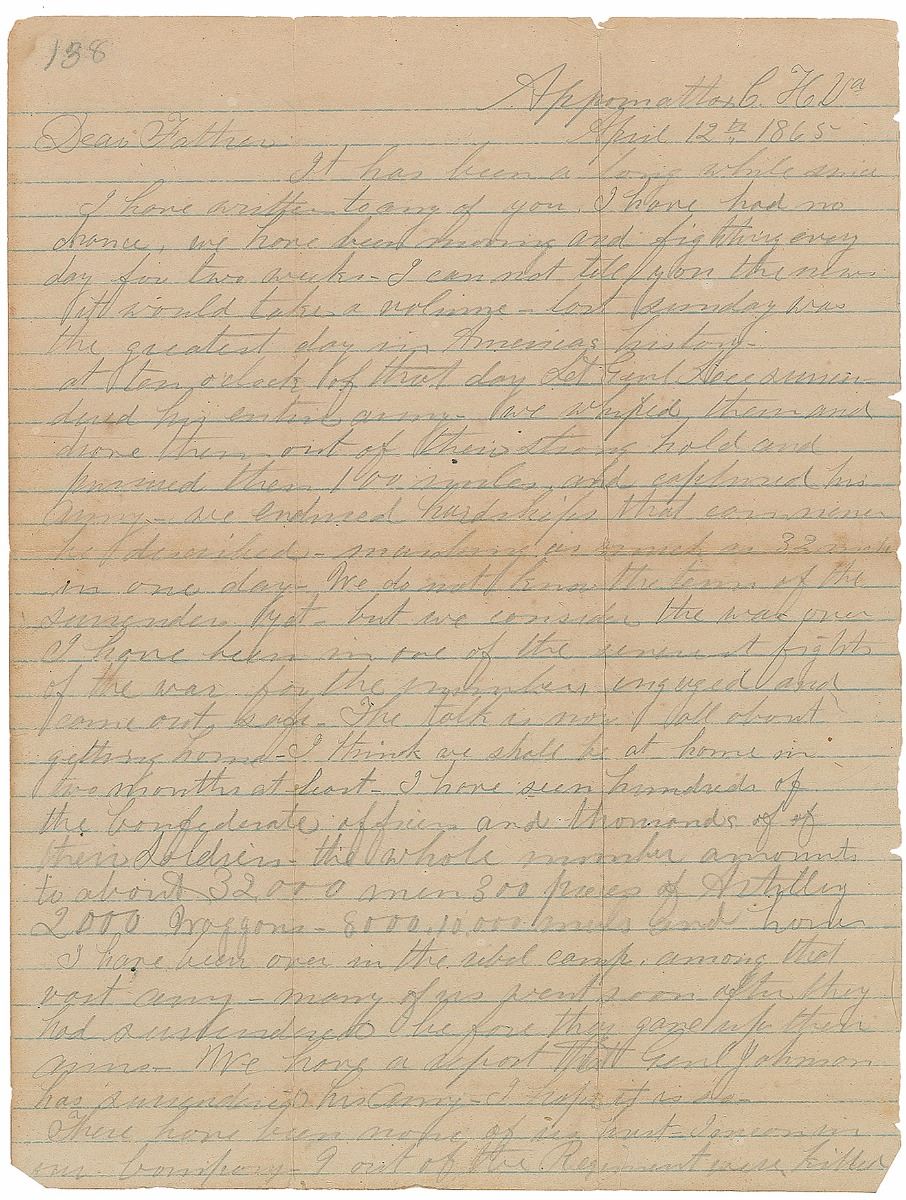 138
Appomattox C. H. Va
April 12th, 1865
Dear Father
It has been a long while since
I have written to any of you. I have had no
chance, we have been moving and fighting every
day for two weeks - I can not tell you the news
it would take a volume - last sunday was
the greatest day in Americas history -
at ten oclock of that day Lt Genl Lee surren
dered his entire army. We whiped them and
drove them out of their strong hold and
pursued them 100 miles and captured his
army - we endured hardships that can never
be described - marching as much as 32 miles
in one day - We do not know the terms of the
surrender yet - but we consider the war over
I have been in one of the severest fights
of the war for the numbers engaged and
came out safe - The talk is now all about
getting home - I think we shall be at home in
two months at least - I have seen hundreds of
the Confederate officers and thousands of of
their Soldiers - the whole number amounts
to about 32000 men 300 pieces of Artillery
2000 Waggons - 8000, 10,000 muls and horses
I have been over in the rebel camp, among that
vast army - many of us went soon after they
had surrendered before they gave up their
arms - We have a report that Genl Johnson
has surrendered his Army - I hope it is so -
There have been none of us hurt in
our Company - 9 out of the Regiment were killed